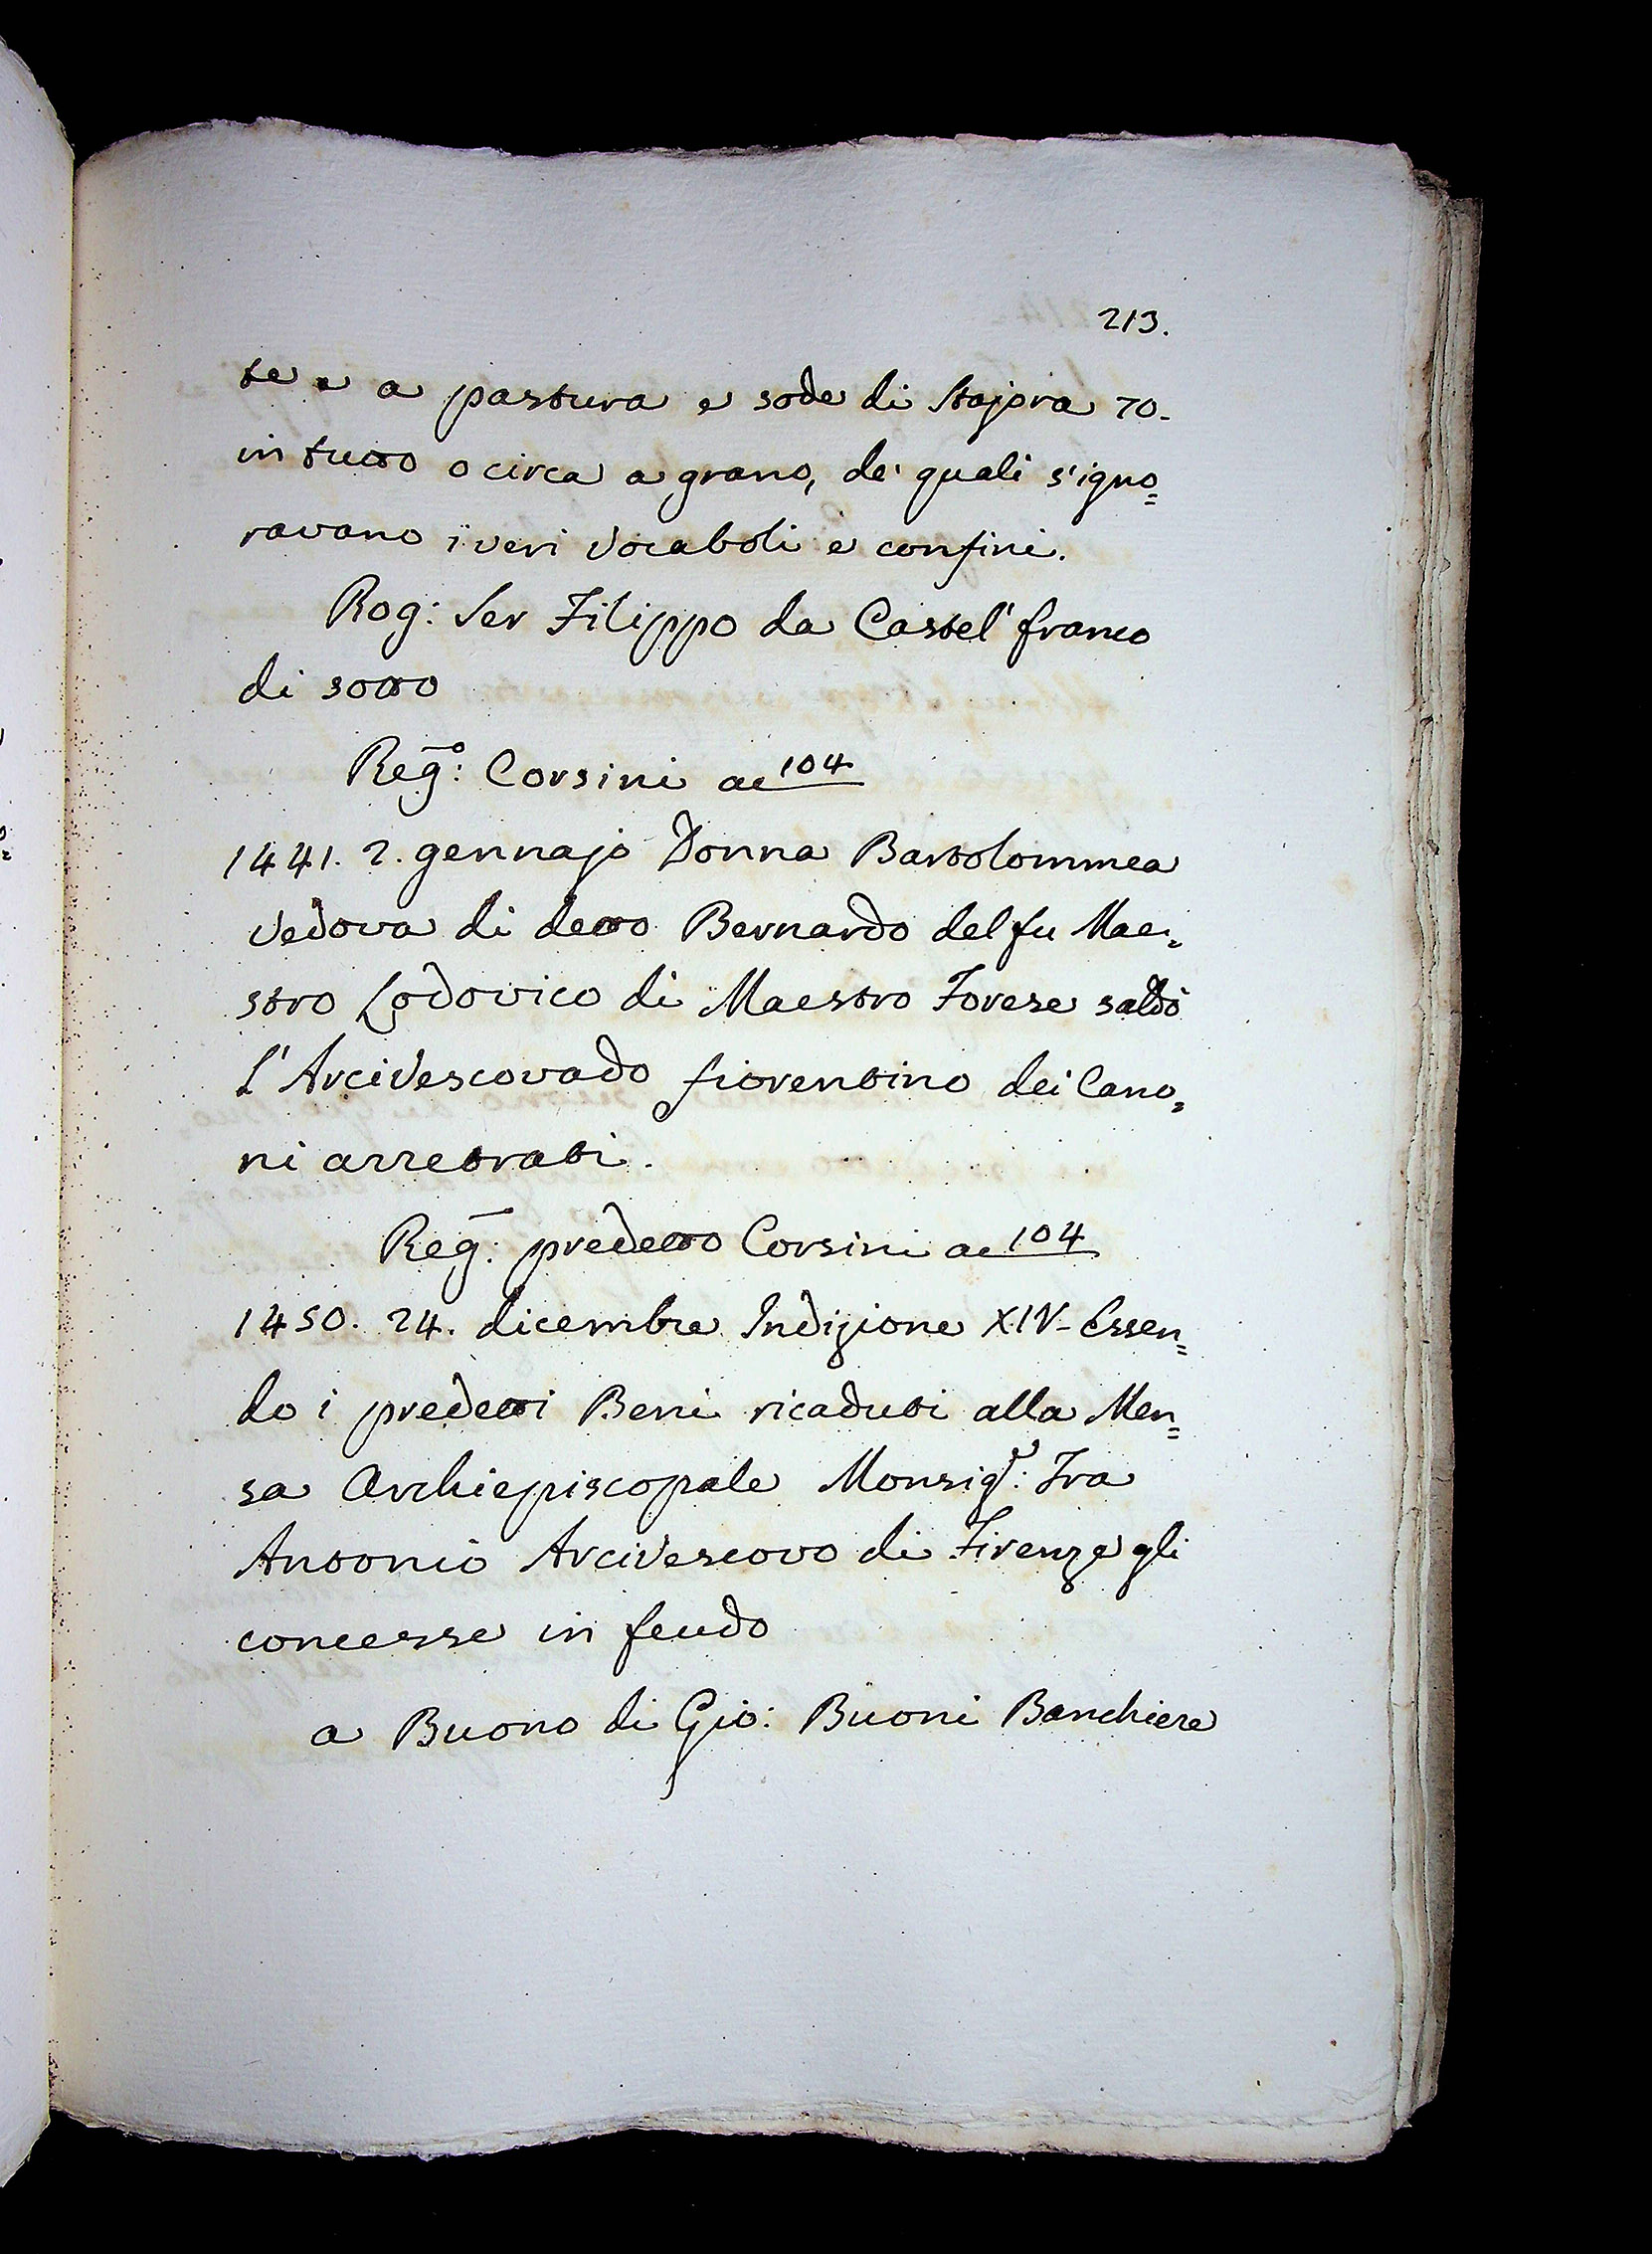 213.
te e a pastura e sode di Stajora 70-
in tutto o circa a grano, de' quali s'igno=
ravano i veri vocaboli e confini.
Rog: Ser Filippo da Castel' franco
di sotto
Regº: Corsini ac 104
1441. 2. gennajo Donna Bartolommea
Vedova di detto Bernardo del fu Mae=
stro Lodovico di Maestro Forese saldò
l'Arcivescovado fiorentino dei Cano=
ni arretrati.
Reg: predetto Corsini ac 104
1450. 24. dicembre Indizione XIV- Essen=
do i predetti Beni ricaduti alla Men=
sa Archiepiscopale Monsigʳ: Fra
Antonio Arcivescovo di Firenze gli
concesse in feudo
a Buono di Gio: Buoni Banchiere